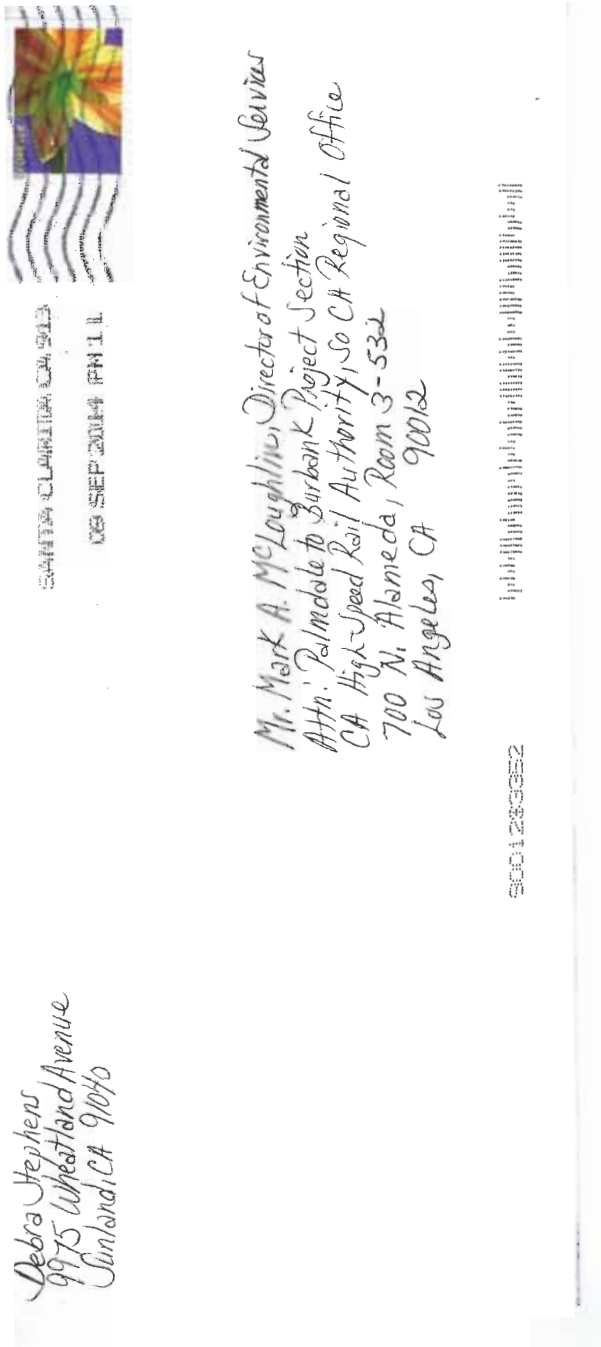 Debra Stephens
9975 Wheatland Avenue
Sunland, CA 91040
SANTA CLARITA CA 913
08 SEP 2014 PM 1 L
Mr. Mark A. McLoughlin, Director of Environmental Services
Attn: Palmdale to Burbank Project Section
CA High-Speed Rail Authority, So CA Regional Office
700 N. Alameda, Room 3-532
Los Angeles, CA 90012